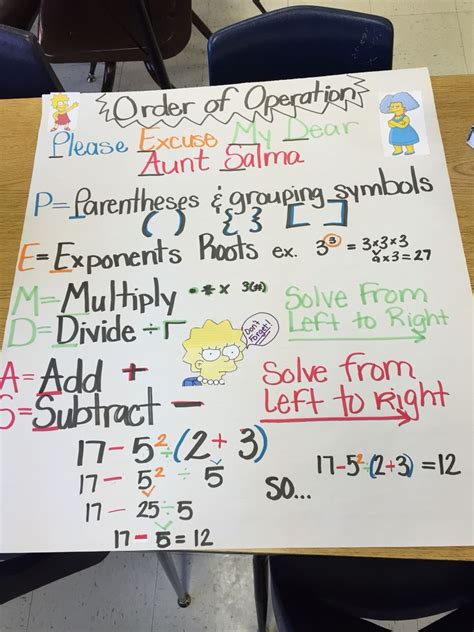 Order of Operation
Please Excuse My Dear
Aunt Salma
P=Parentheses & grouping symbols
( ) { } [ ]
E=Exponents Roots ex. 3³ = 3×3×3
9×3=27
M=Multiply • * × 3(4)
D=Divide ÷ Γ
Solve From
Left to Right
Don't Forget!
A=Add +
S=Subtract −
Solve from
Left to Right
17−5²÷(2+3)
17−5²÷5
17−25÷5
17−5=12
SO...
17−5²÷(2+3)=12